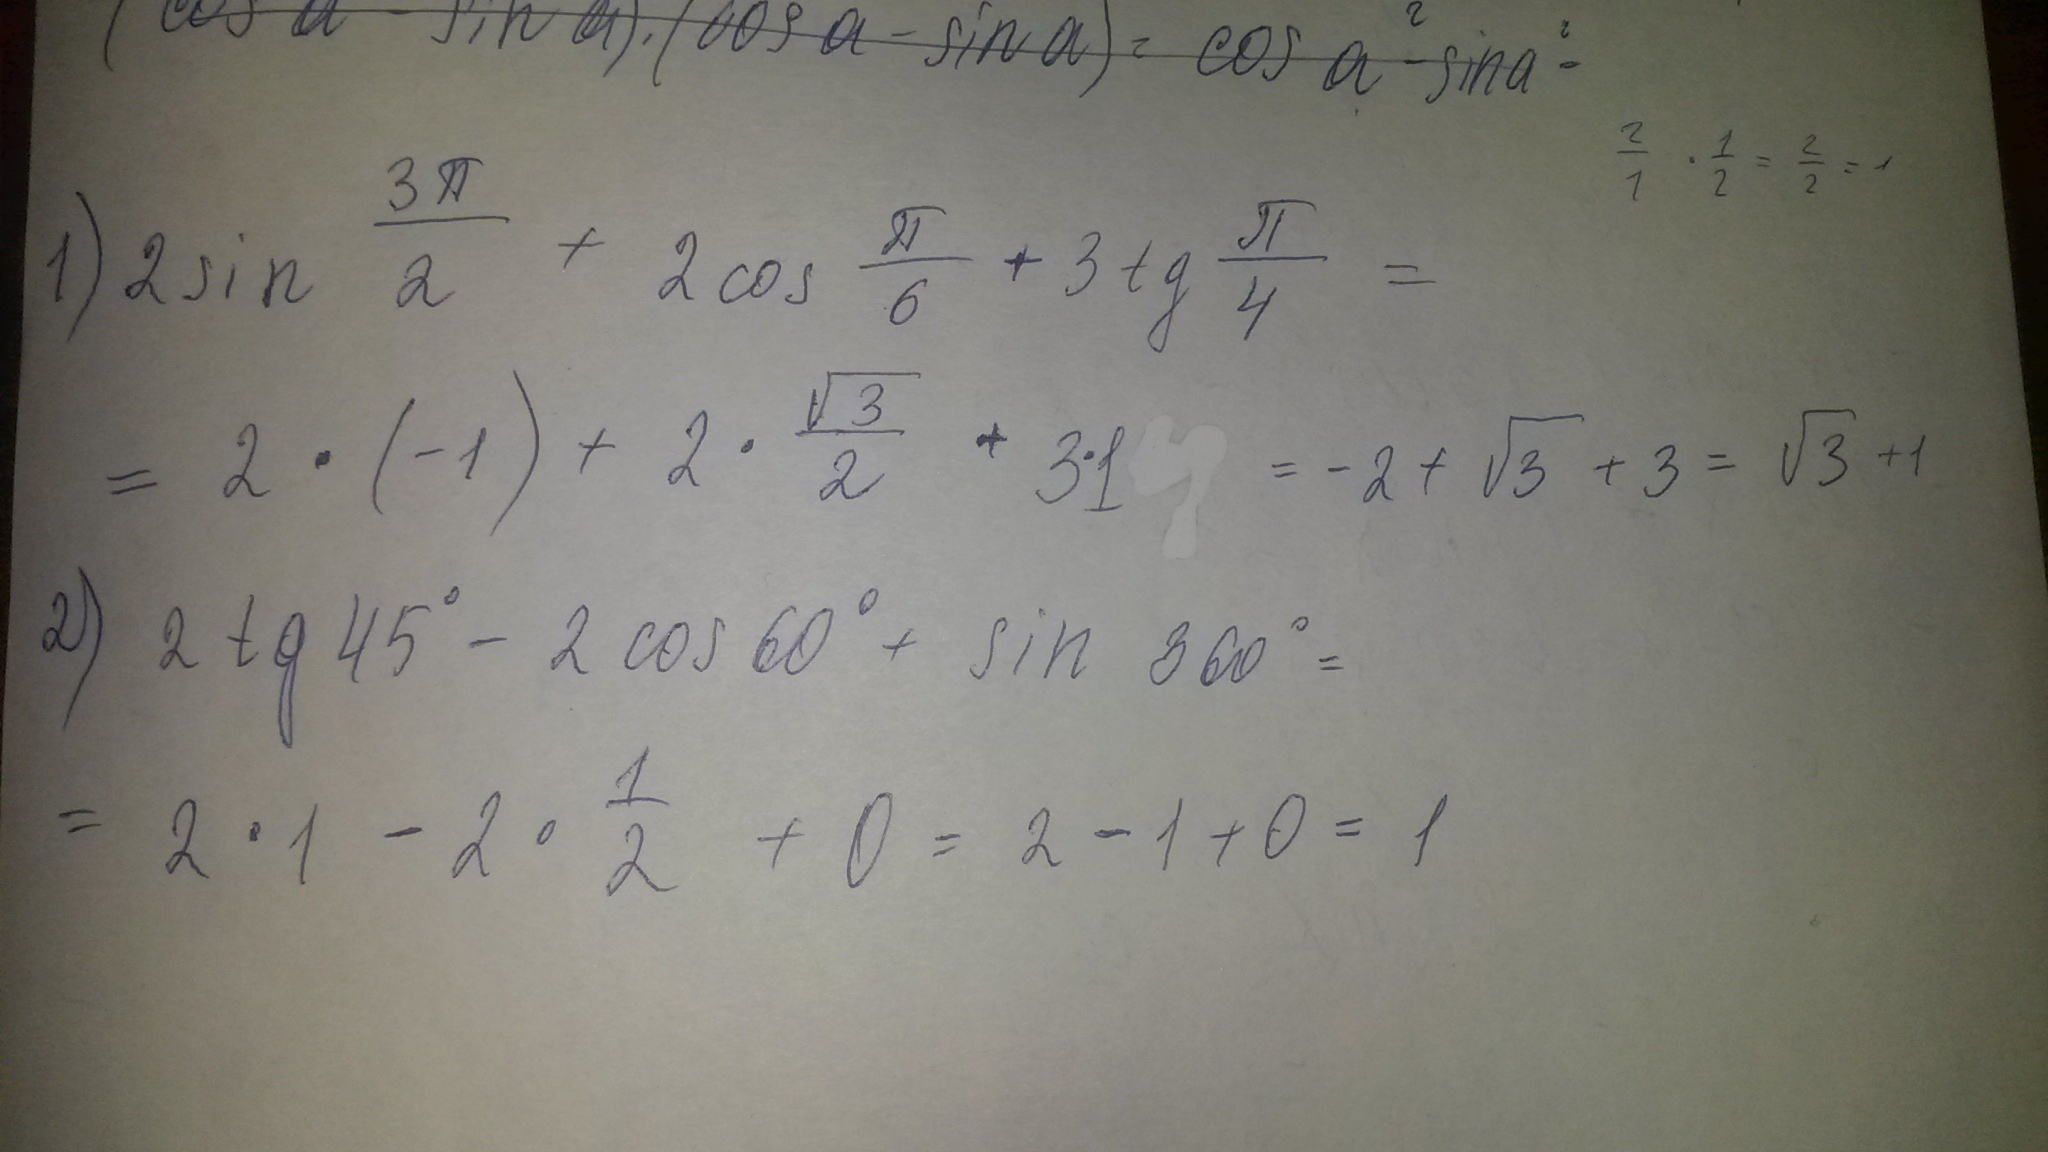 (cos a - sin a).(cos a - sin a) = cos a² - sin a² =
2/1 · 1/2 = 2/2 = 1
1) 2 sin 3π/2 + 2 cos π/6 + 3 tg π/4 =
= 2 · (-1) + 2 · √3/2 + 3·1 = -2 + √3 + 3 = √3 + 1
2) 2 tg 45° - 2 cos 60° + sin 360° =
= 2 · 1 - 2 · 1/2 + 0 = 2 - 1 + 0 = 1